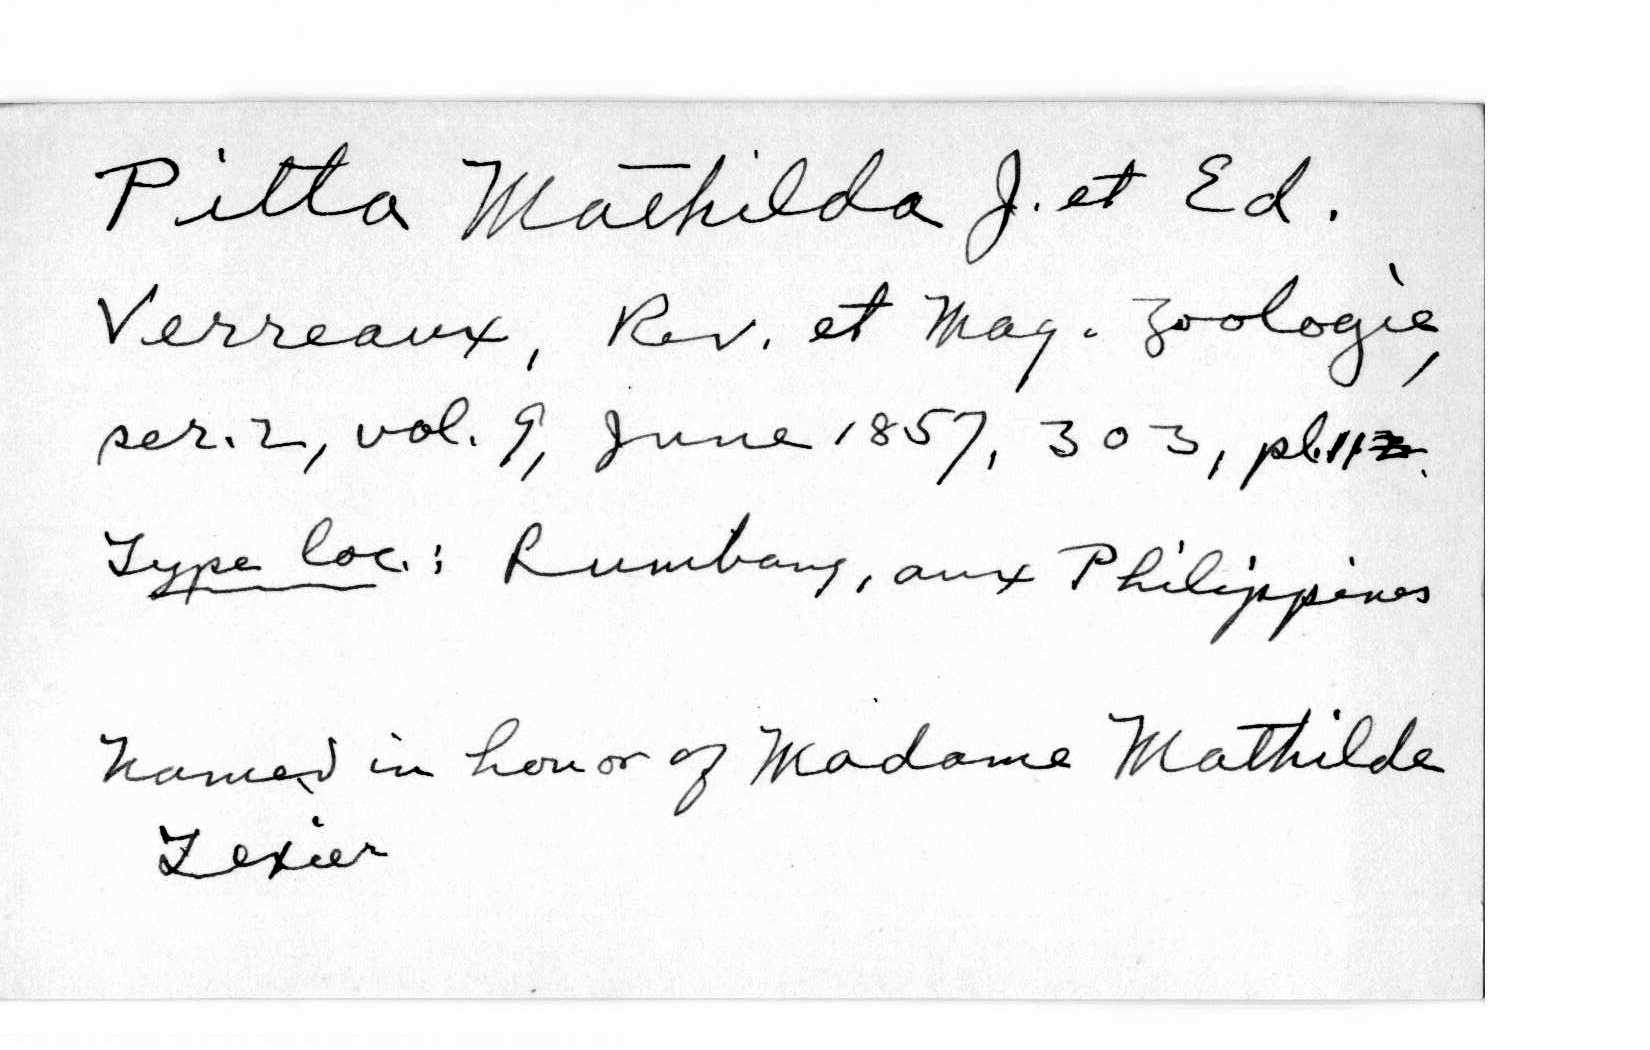 Pitta Mathilda J. et Ed.
Verreaux, Rev. et Mag. Zoologie,
ser. 2, vol. 9, June 1857, 303, pl.
Type loc.: Rumbang, aux Philippines
Named in honor of Madame Mathilde
Texier